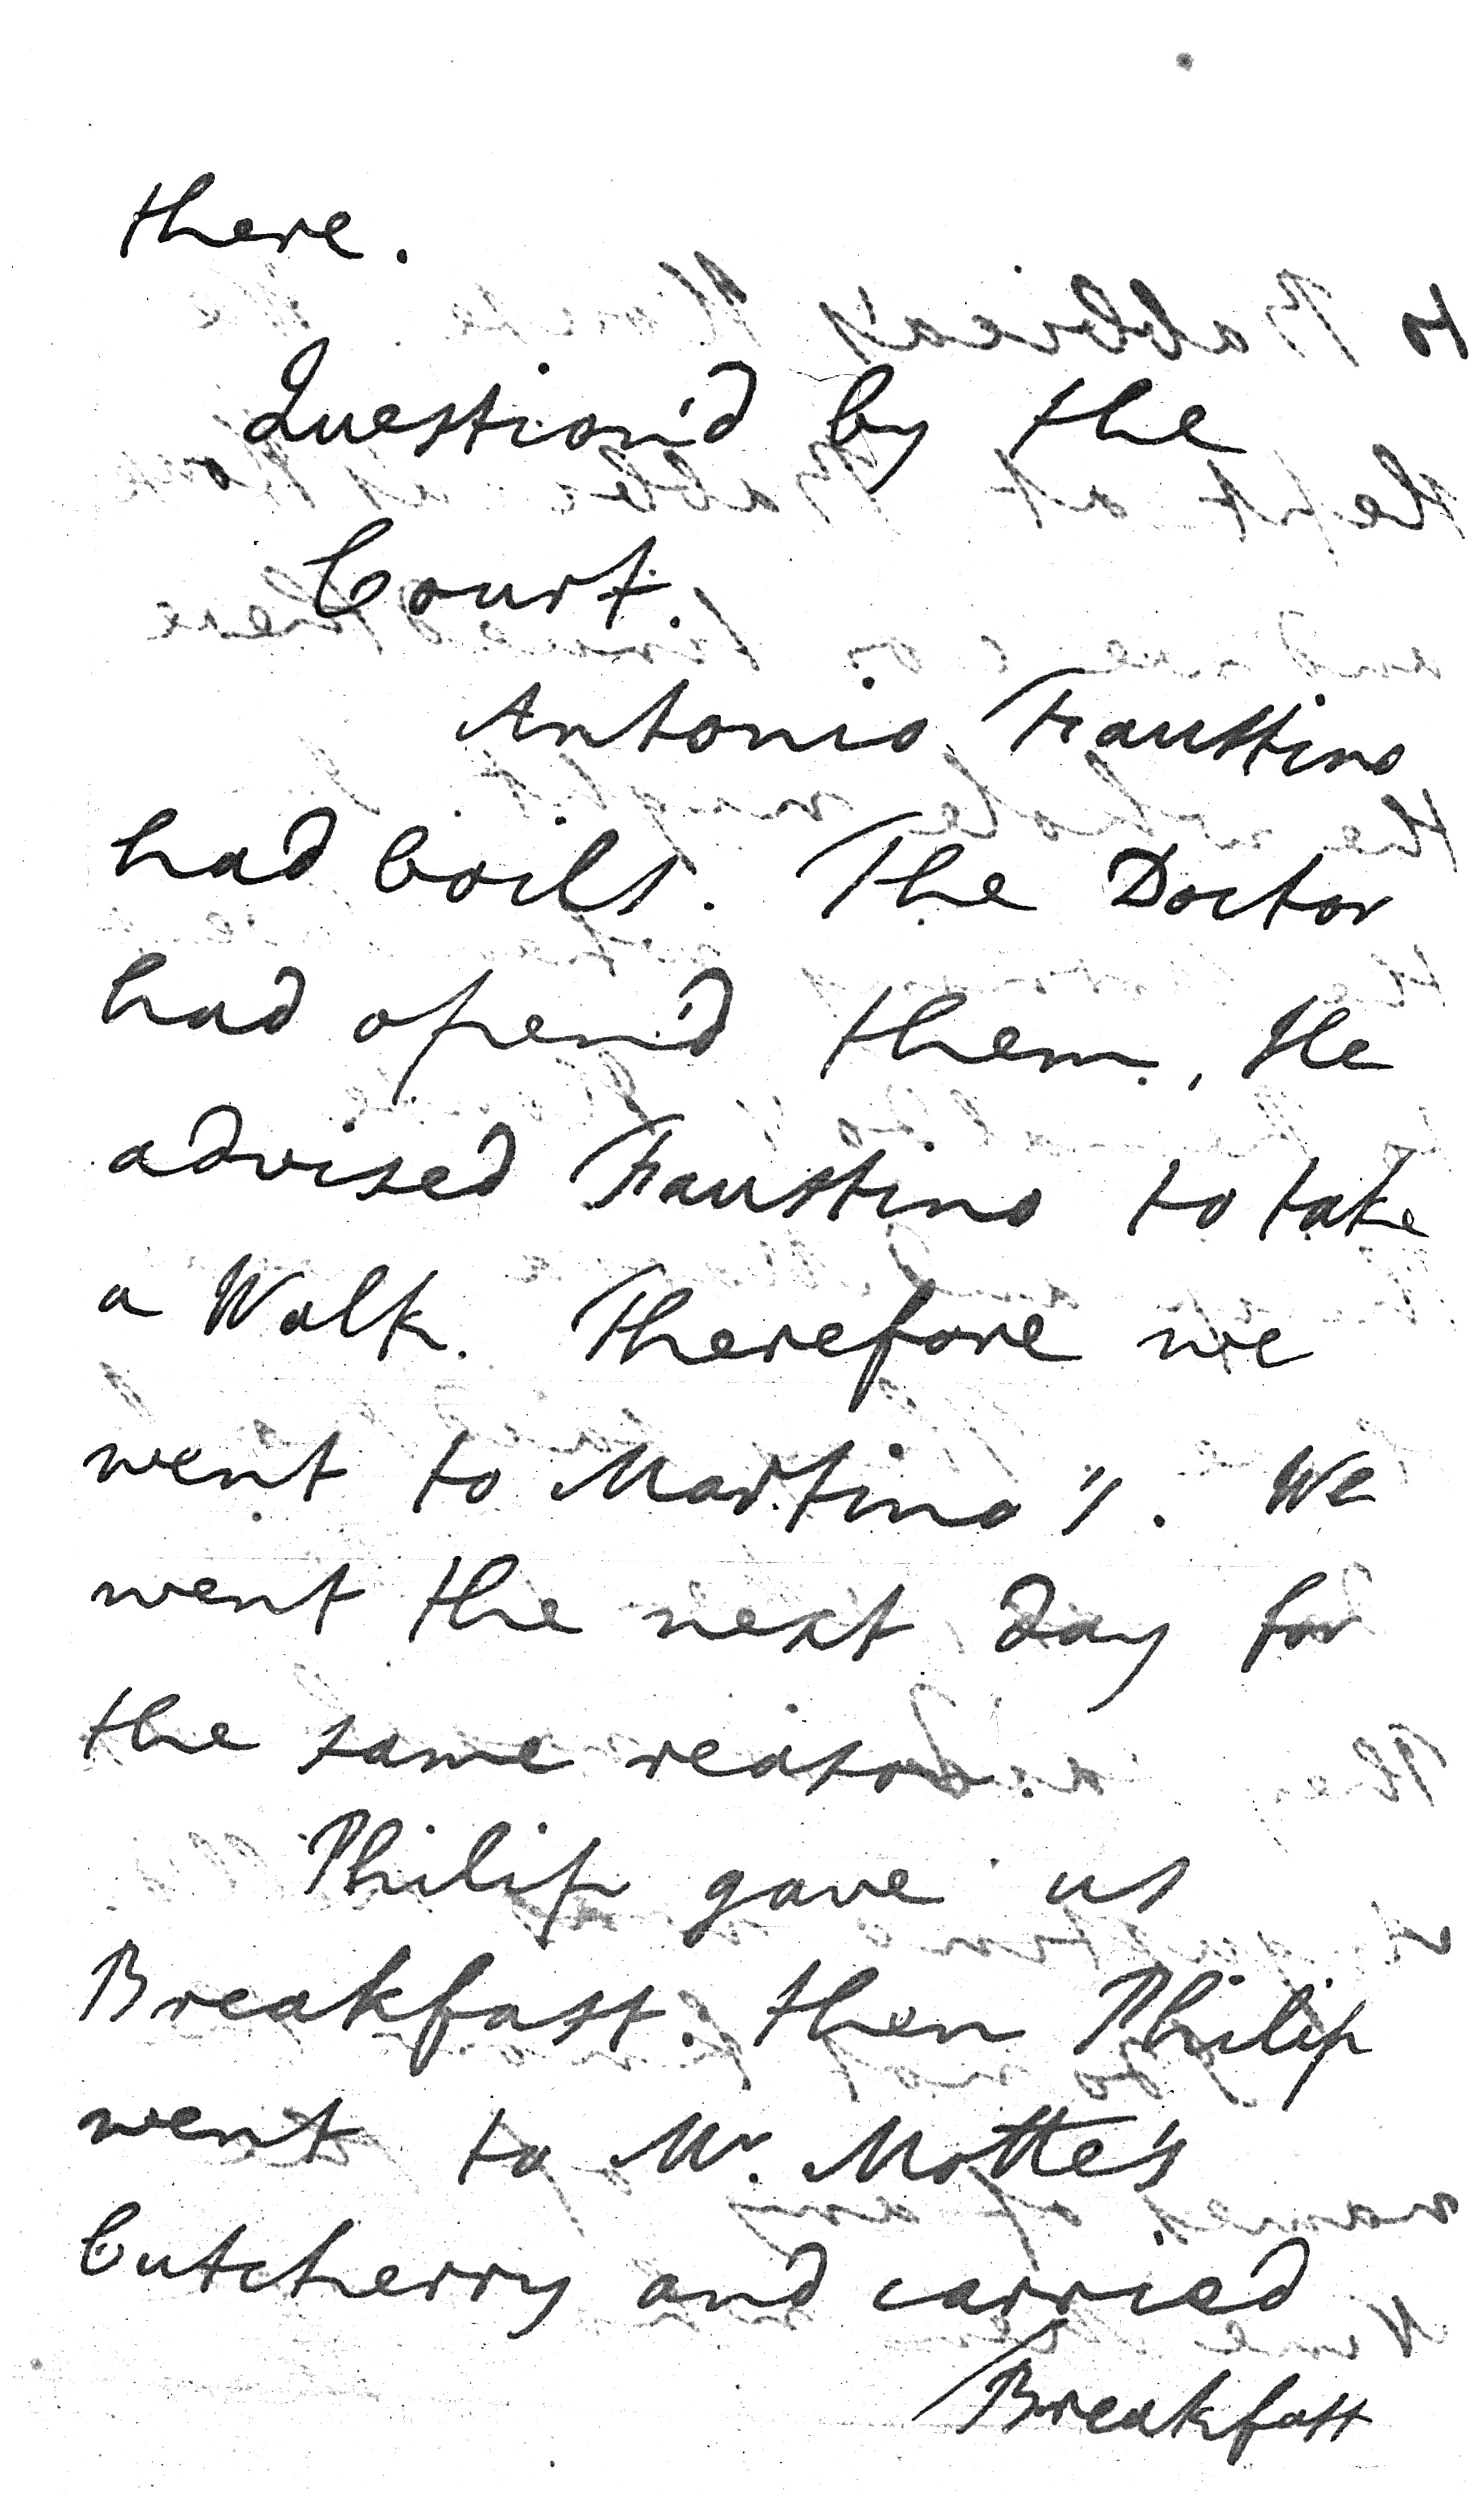 there.
Question'd by the
Court.
Antonio Faustino
had boils. The Doctor
had open'd them, He
advised Faustino to take
a Walk. Therefore we
went to Martino's. We
went the next day for
the same reason.
Philip gave us
Breakfast. then Philip
went to Mr. Motte's
Cutcherry and carried
Breakfast